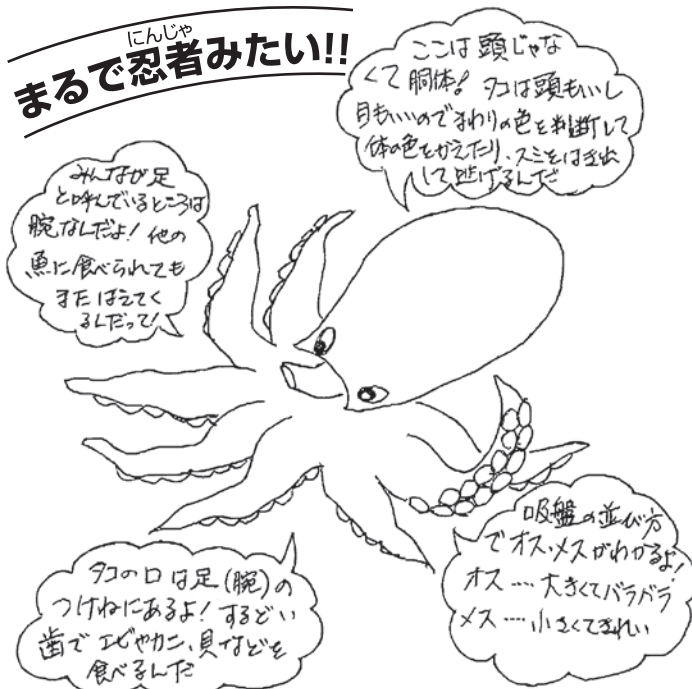 にんじゃ
まるで忍者みたい!!
ここは頭じゃな
くて胴体! タコは頭もいいし
目もいいのでまわりの色を判断して
体の色をかえたり、スミをはき出
して逃げるんだ
みんなが足
と呼んでいるところは
腕なんだよ! 他の
魚に食べられても
またはえてく
るんだって!
タコの口は足(腕)の
つけねにあるよ! するどい
歯でエビやカニ、貝などを
食べるんだ
吸盤の並び方
でオス、メスがわかるよ!
オス……大きくてバラバラ
メス……小さくてきれい